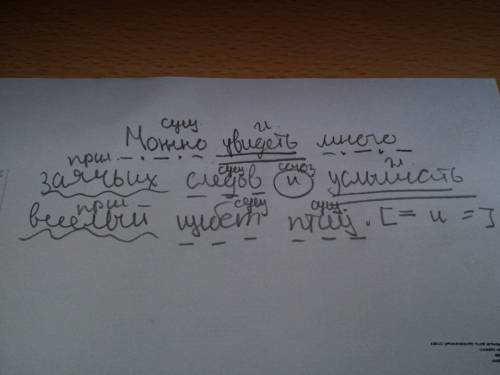 сущ гл
Можно увидеть много
прил сущ союз гл
заячьих следов и услышать
прил сущ сущ.
веселый щебет птиц. [= и =]